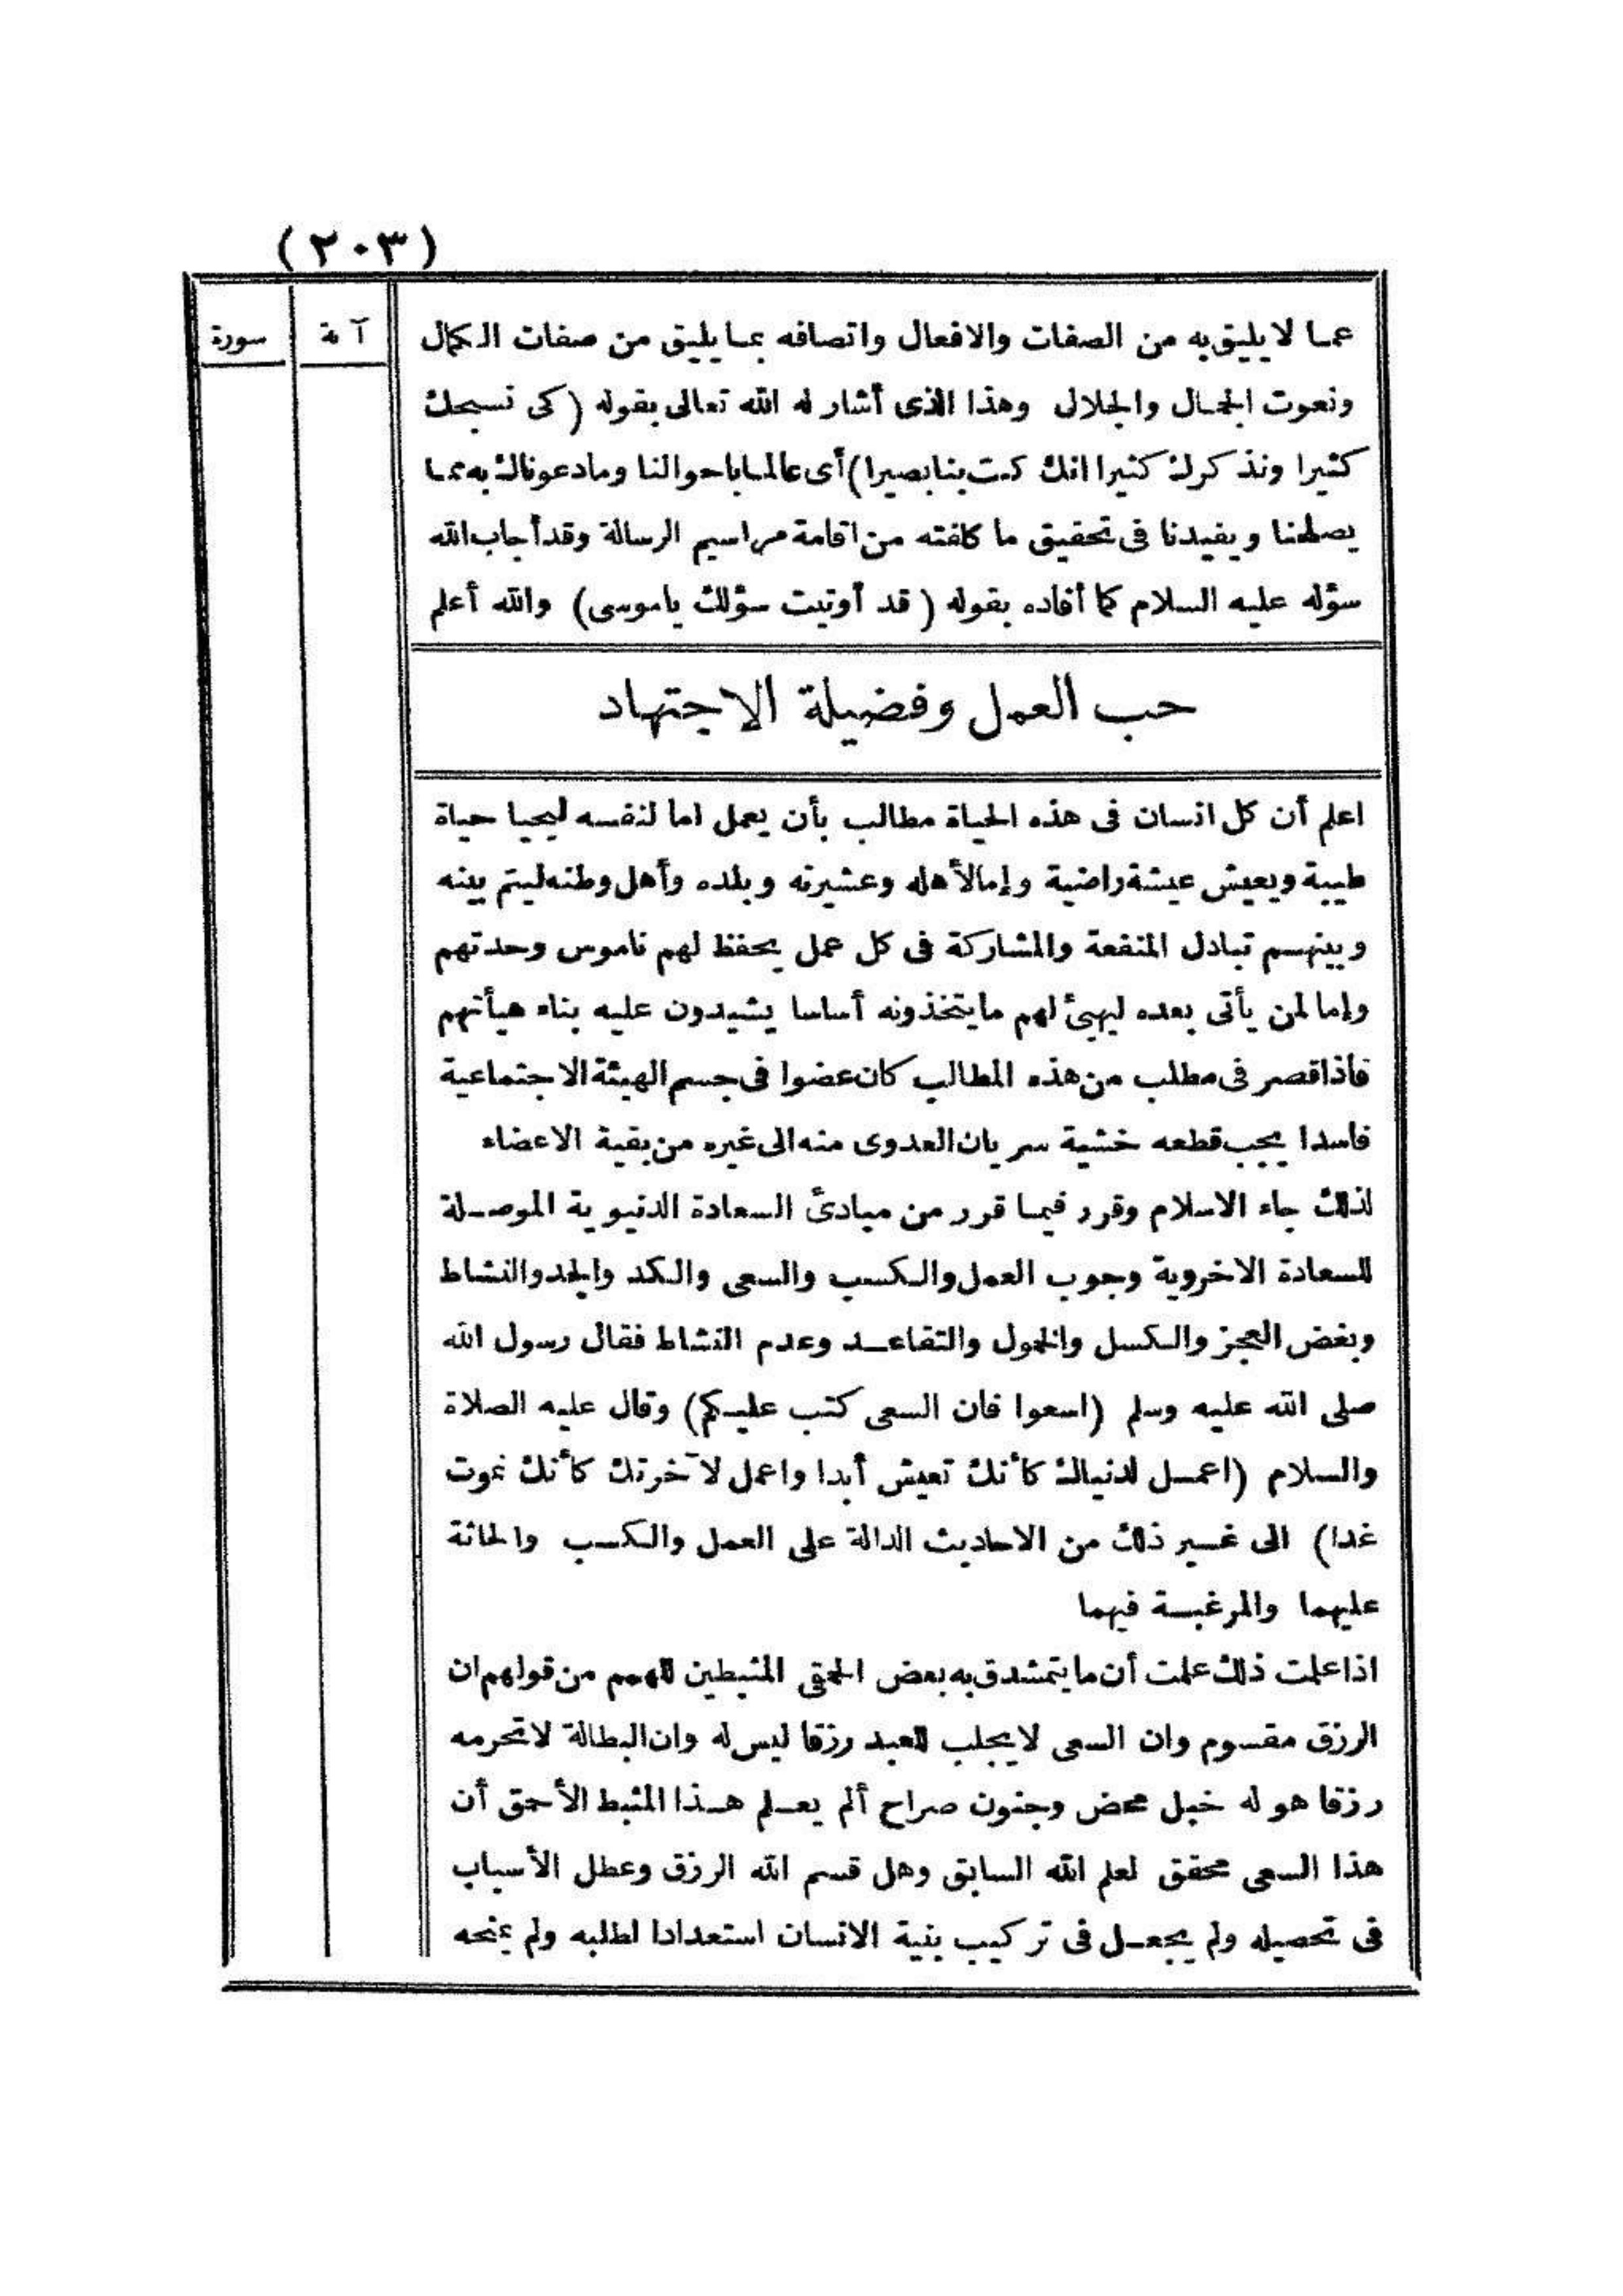 (٢٠٣)
آية
سورة
عما لا يليق به من الصفات والافعال واتصافه بما يليق من صفات الكمال
ونعوت الجمال والجلال وهذا الذى أشار له الله تعالى بقوله (كى نسبحك
كثيرا ونذكرك كثيرا انك كنت بنا بصيرا) أى عالما باحوالنا وما دعوناك به مما
يصلحنا ويفيدنا فى تحقيق ما كلفته من اقامة مراسيم الرسالة وقد أجاب الله
سؤله عليه السلام كما أفاده بقوله (قد أوتيت سؤلك ياموسى) والله أعلم
حب العمل وفضيلة الإجتهاد
اعلم أن كل انسان فى هذه الحياة مطالب بأن يعمل اما لنفسه ليحيا حياة
طيبة ويعيش عيشة راضية وإما لأهله وعشيرته وبلده وأهل وطنه ليتم بينه
وبينهم تبادل المنفعة والمشاركة فى كل عمل يحفظ لهم ناموس وحدتهم
وإما لمن يأتى بعده ليهيئ لهم ما يتخذونه أساسا يشيدون عليه بناء هيأتهم
فاذا قصر فى مطلب من هذه المطالب كان عضوا فى جسم الهيئة الاجتماعية
فاسدا يجب قطعه خشية سريان العدوى منه الى غيره من بقية الاعضاء
لذلك جاء الاسلام وقرر فيما قرر من مبادئ السعادة الدنيوية الموصلة
للسعادة الاخروية وجوب العمل والكسب والسعى والكد والجد والنشاط
وبغض العجز والكسل والخمول والتقاعد وعدم النشاط فقال رسول الله
صلى الله عليه وسلم (اسعوا فان السعى كتب عليكم) وقال عليه الصلاة
والسلام (اعمل لدنياك كأنك تعيش أبدا واعمل لآخرتك كأنك تموت
غدا) الى غير ذلك من الاحاديث الدالة على العمل والكسب والحاثة
عليهما والمرغبة فيهما
اذا علمت ذلك علمت أن ما يتمشدق به بعض الحمقى المثبطين للهمم من قولهم ان
الرزق مقسوم وان السعى لا يجلب للعبد رزقا ليس له وان البطالة لا تحرمه
رزقا هو له خبل محض وجنون صراح ألم يعلم هذا المثبط الأحمق أن
هذا السعى محقق لعلم الله السابق وهل قسم الله الرزق وعطل الأسباب
فى تحصيله ولم يجعل فى تركيب بنية الانسان استعدادا لطلبه ولم يمنحه